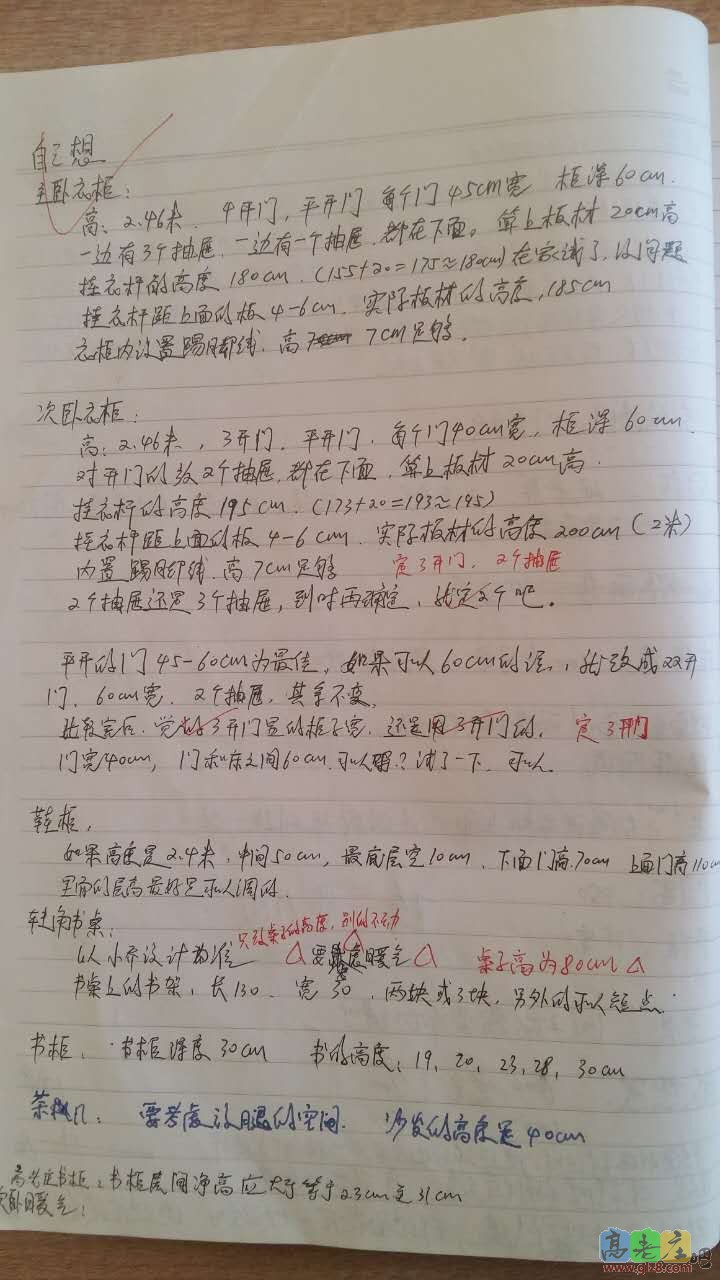 自己想
主卧衣柜:
高: 2.46米, 4开门, 平开门 每个门45cm宽 柜深60cm.
一边有3个抽屉, 一边有一个抽屉, 都在下面。算上板材20cm高
挂衣杆的高度180cm. (155+20=175≈180cm) 在家试了, 没问题
挂衣杆距上面的板4-6cm. 实际板材的高度, 185cm
衣柜内设置踢脚线. 高 7cm足够。
次卧衣柜:
高: 2.46米, 3开门, 平开门, 每个门40cm宽, 柜深60cm.
对开门的放2个抽屉, 都在下面, 算上板材20cm高.
挂衣杆的高度195cm. (173+20=193≈195)
挂衣杆距上面的板4-6cm. 实际板材的高度200cm (2米)
内置踢脚线. 高7cm足够 定3开门, 2个抽屉
2个抽屉还是3个抽屉, 到时再确定, 就定2个吧。
平开的门45-60cm为最佳, 如果可以60cm的话, 就改成双开
门, 60cm宽, 2个抽屉, 其余不变.
比较完后, 觉的3开门宽的柜子宽, 还是用3开门的, 定3开门
门宽40cm, 门和床之间60cm, 可以吗? 试了一下, 可以.
鞋柜,
如果高度是2.4米, 中间50cm, 最底层空10cm, 下面门高70cm 上面门高110cm
里面的层高最好是可以调的.
转角书桌:
只改桌子的高度, 别的不动
以小乔设计为准 △要考虑暖气△ 桌子高为80cm△
书桌上的书架, 长130, 宽30, 两块或3块, 另外的可以短点.
书柜, 书柜深度30cm 书的高度: 19, 20, 23, 28, 30cm
茶几: 要考虑放腿的空间. 沙发的高度是40cm
书柜: 书柜层间净高应大于等于23cm至31cm
次卧暖气:
高老庄吧
www.glz8.com